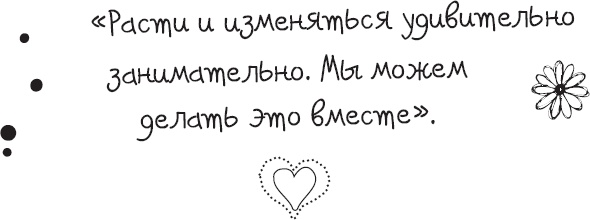 «Расти и изменяться удивительно
занимательно. Мы можем
делать это вместе».